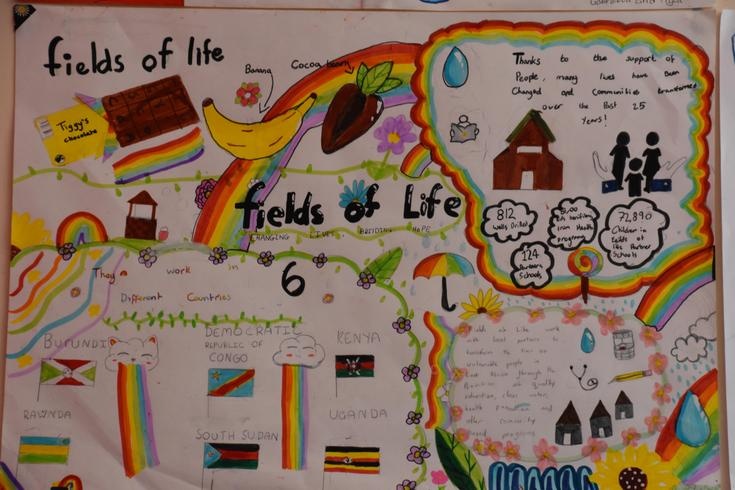 fields of life
Tiggy's
chocolate
Banana
Cocoa bean
Thanks to the support of
People, many lives have been
Changed and Communities transformed
over the Past 25
Years!
812
Wells Drilled
in
programs
72,890
Children in
fields of
life Partner
Schools
124
Partners
Schools
fields of Life
CHANGING LIVES, BUILDING HOPE
They work in 6
Different Countries
BURUNDI
DEMOCRATIC
REPUBLIC OF
CONGO
KENYA
RAWNDA
SOUTH SUDAN
UGANDA
Fields of Life work
with local partners to
transform the lives of
vulnerable people in
East Africa through the
Provision of quality
education, clean water,
health and
other community
based programs